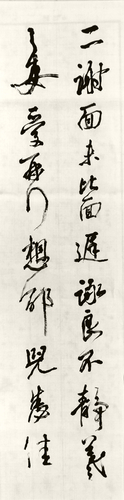 二謝面未比面遲詠良不靜羲
之女愛再行想邰兒悉佳